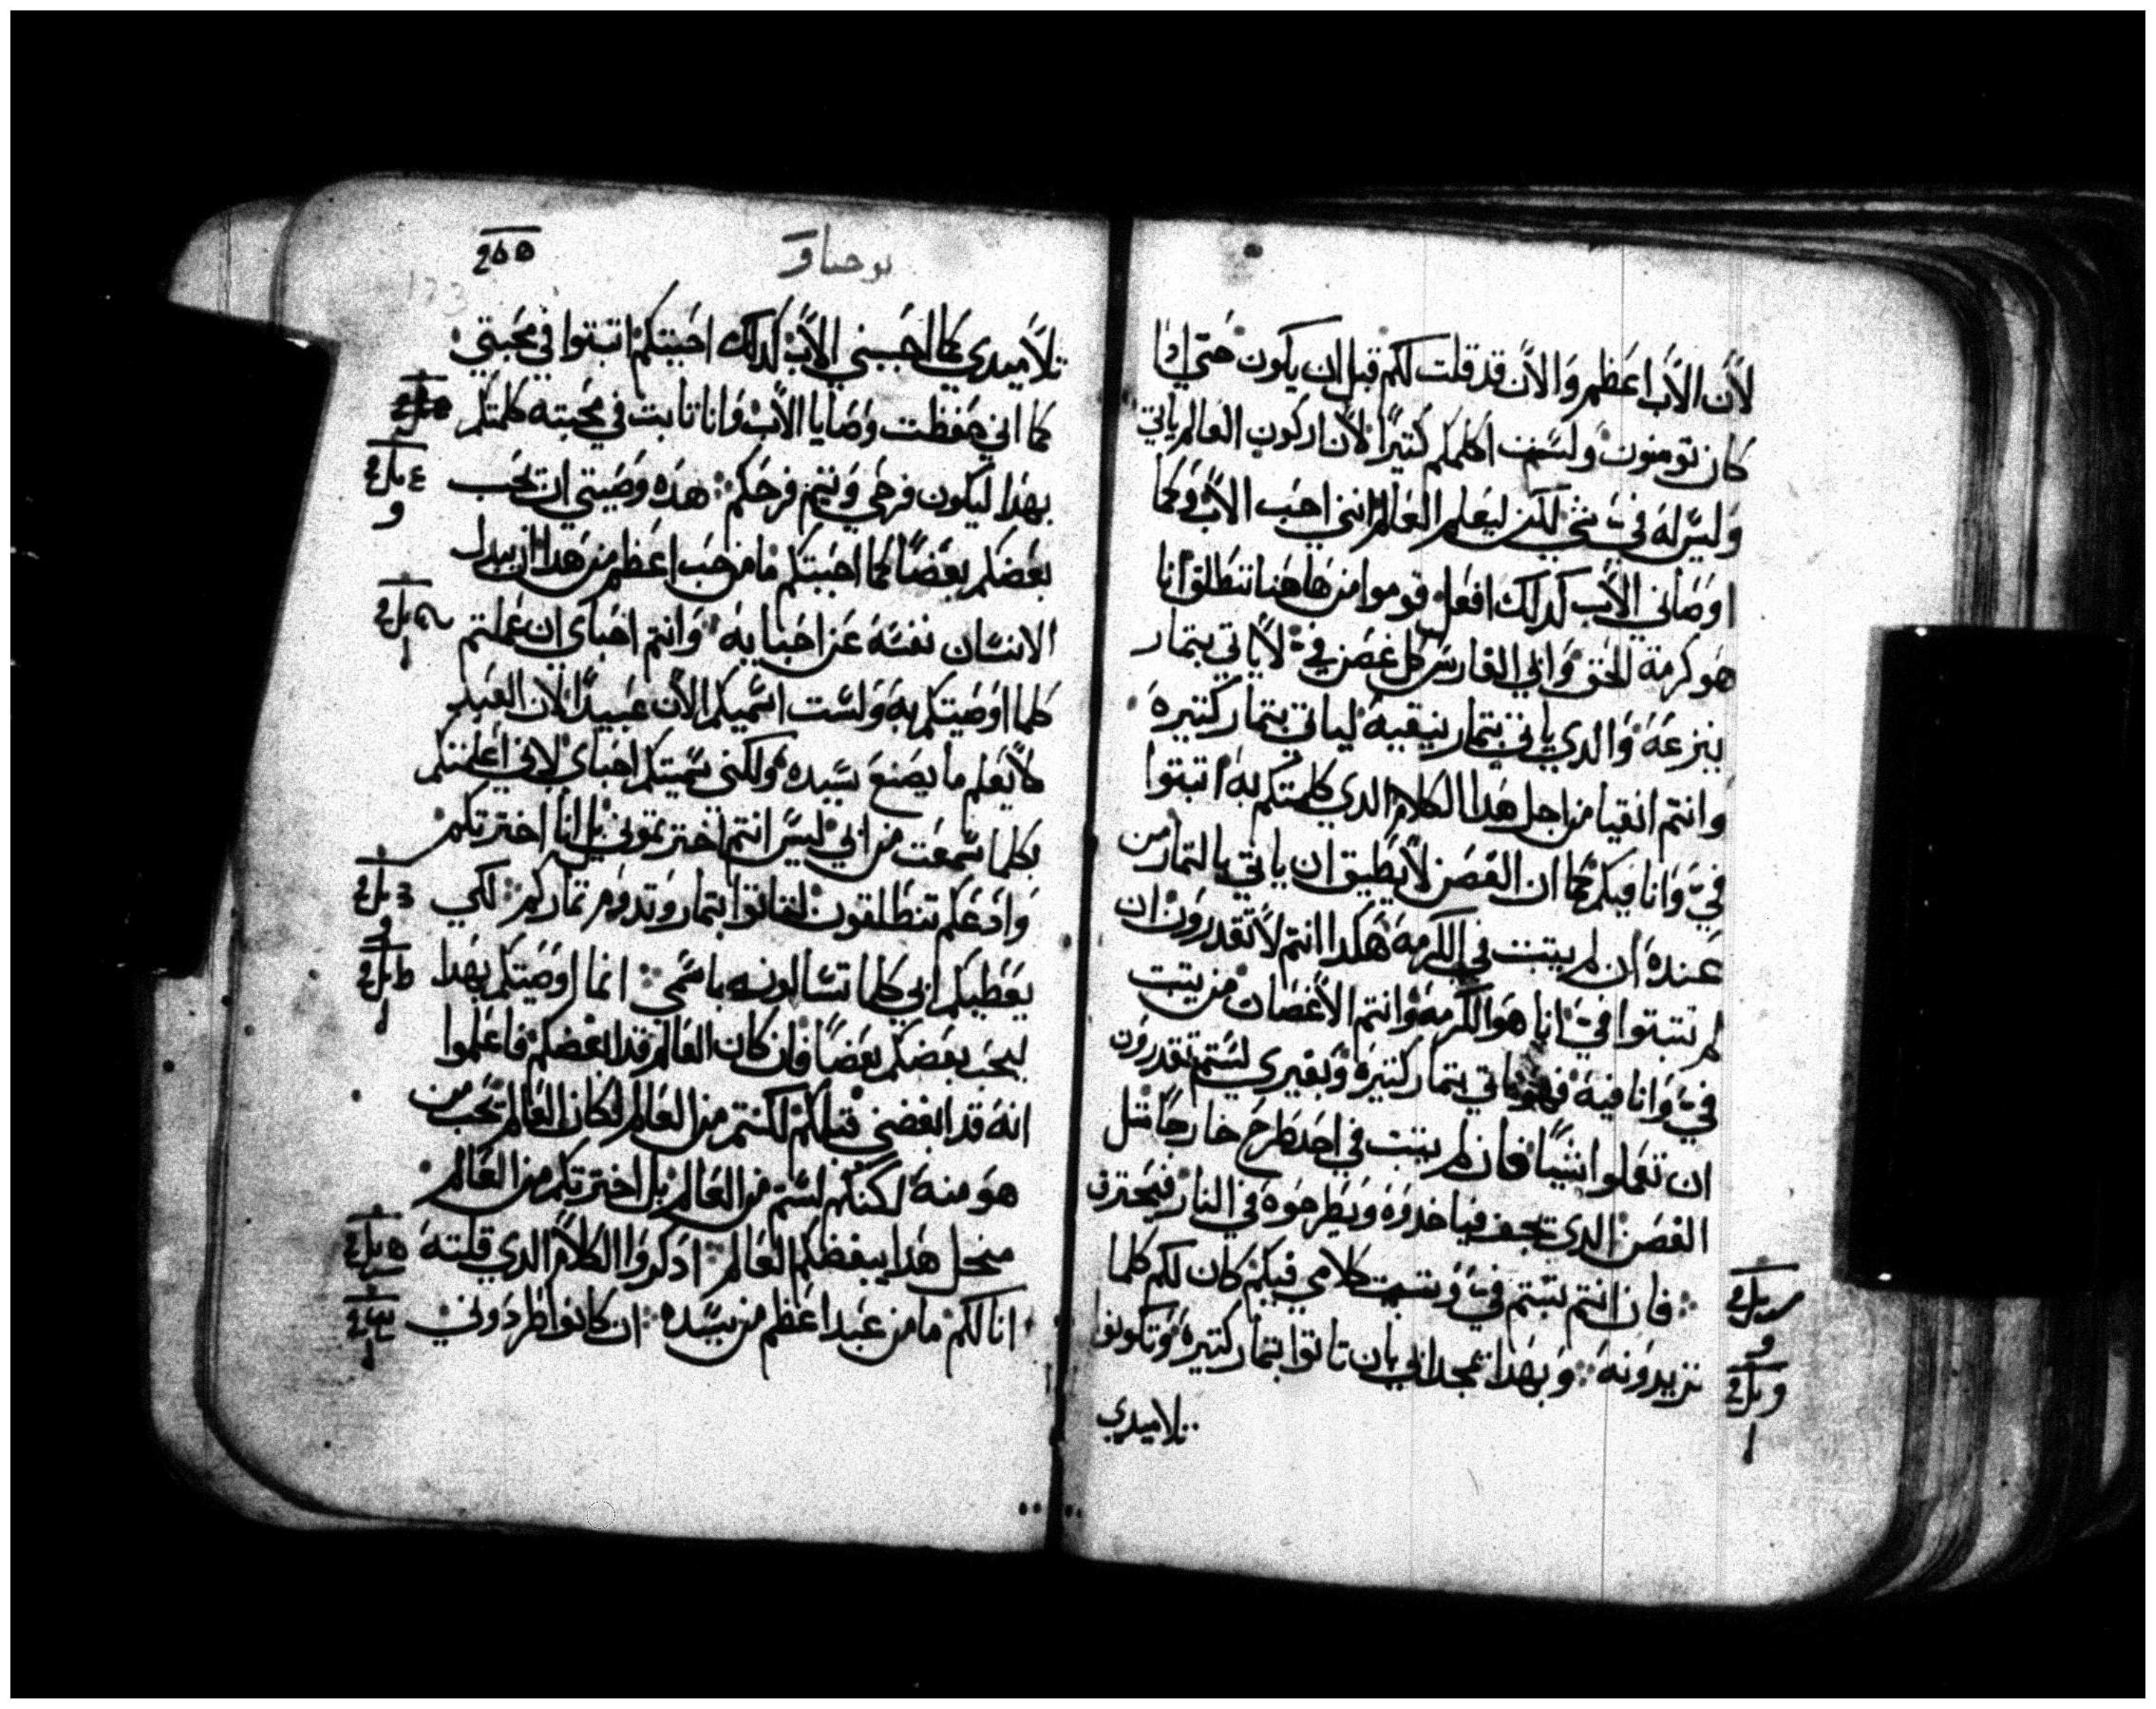 لأن الآب اعظم والان قد قلت لكم قبل ان يكون حتي ادا
كان تومنون ولست اكلمكم كتيرًا لان اركون العالم ياتي
وليس له في شي لكن ليعلم العالم انني احب الآب وكما
اوصاني الآب كدلك افعل قوموا من هاهنا ننطلق انا
هو كرمة الحق وابي الغارس كل غصن في لا ياتي بتمار
ينزعه والدي ياتي بتمار ينقيه لياتي بتمار كتيره
وانتم انقيا من اجل هدا الكلام الدي كلمتكم به اتبتوا
في وانا فيكم كما ان الغصن لا يطيق ان ياتي بالتمار من
عنده ان لم يتبت في الكرمه هكدا انتم لا تقدرون ان
لم تتبتوا في انا هو الكرمه وانتم الاغصان من يتبت
في وانا فيه فهو ياتي بتمار كتيره وبغيري لستم تقدرون
ان تعملوا شيًا فان لم يتبت في احد طرح خارجًا متل
الغصن الدي يجف فياخدوه ويطرحوه في النار فيحترق
فان انتم تبتم في وتبت كلامي فيكم كان لكم كلما
تريدونه وبهدا تمجد ابي بان تاتوا بتمار كتيره وتكونوا
تلاميدي
يوحنا
تلاميدي كما احبني الآب كدلك احببتكم اتبتوا في محبتي
كما اني حفظت وصايا الآب وانا تابت في محبته كلمتكم
بهدا ليكون فرحي ويتم فرحكم هده وصيتي ان يحب
بعضكم بعضًا كما احببتكم ما من حب اعظم من هدا ان يبدل
الانسان نفسه عن احبايه وانتم احباي ان عملتم
كلما اوصيتكم به ولست اسميكم الان عبيدًا لان العبد
لا يعلم ما يصنع سيده ولكني سميتكم احباي لاني اعلمتكم
بكلما سمعت من ابي ليس انتم اخترتموني بل انا اخترتكم
وادعكم تنطلقون لتاتوا بتمار وتدوم تماركم لكي
يعطيكم ابي كلما تسالونه باسمي انما اوصيتكم بهدا
ليحب بعضكم بعضًا فان كان العالم قد ابغضكم فاعلموا
انه قد ابغضني قبلكم لو كنتم من العالم لكان العالم يحب من
هو منه لكنكم لستم من العالم بل اخترتكم من العالم
منجل هدا يبغضكم العالم ادكروا الكلام الدي قلته
انا لكم ما من عبد اعظم من سيده ان كانوا طردوني